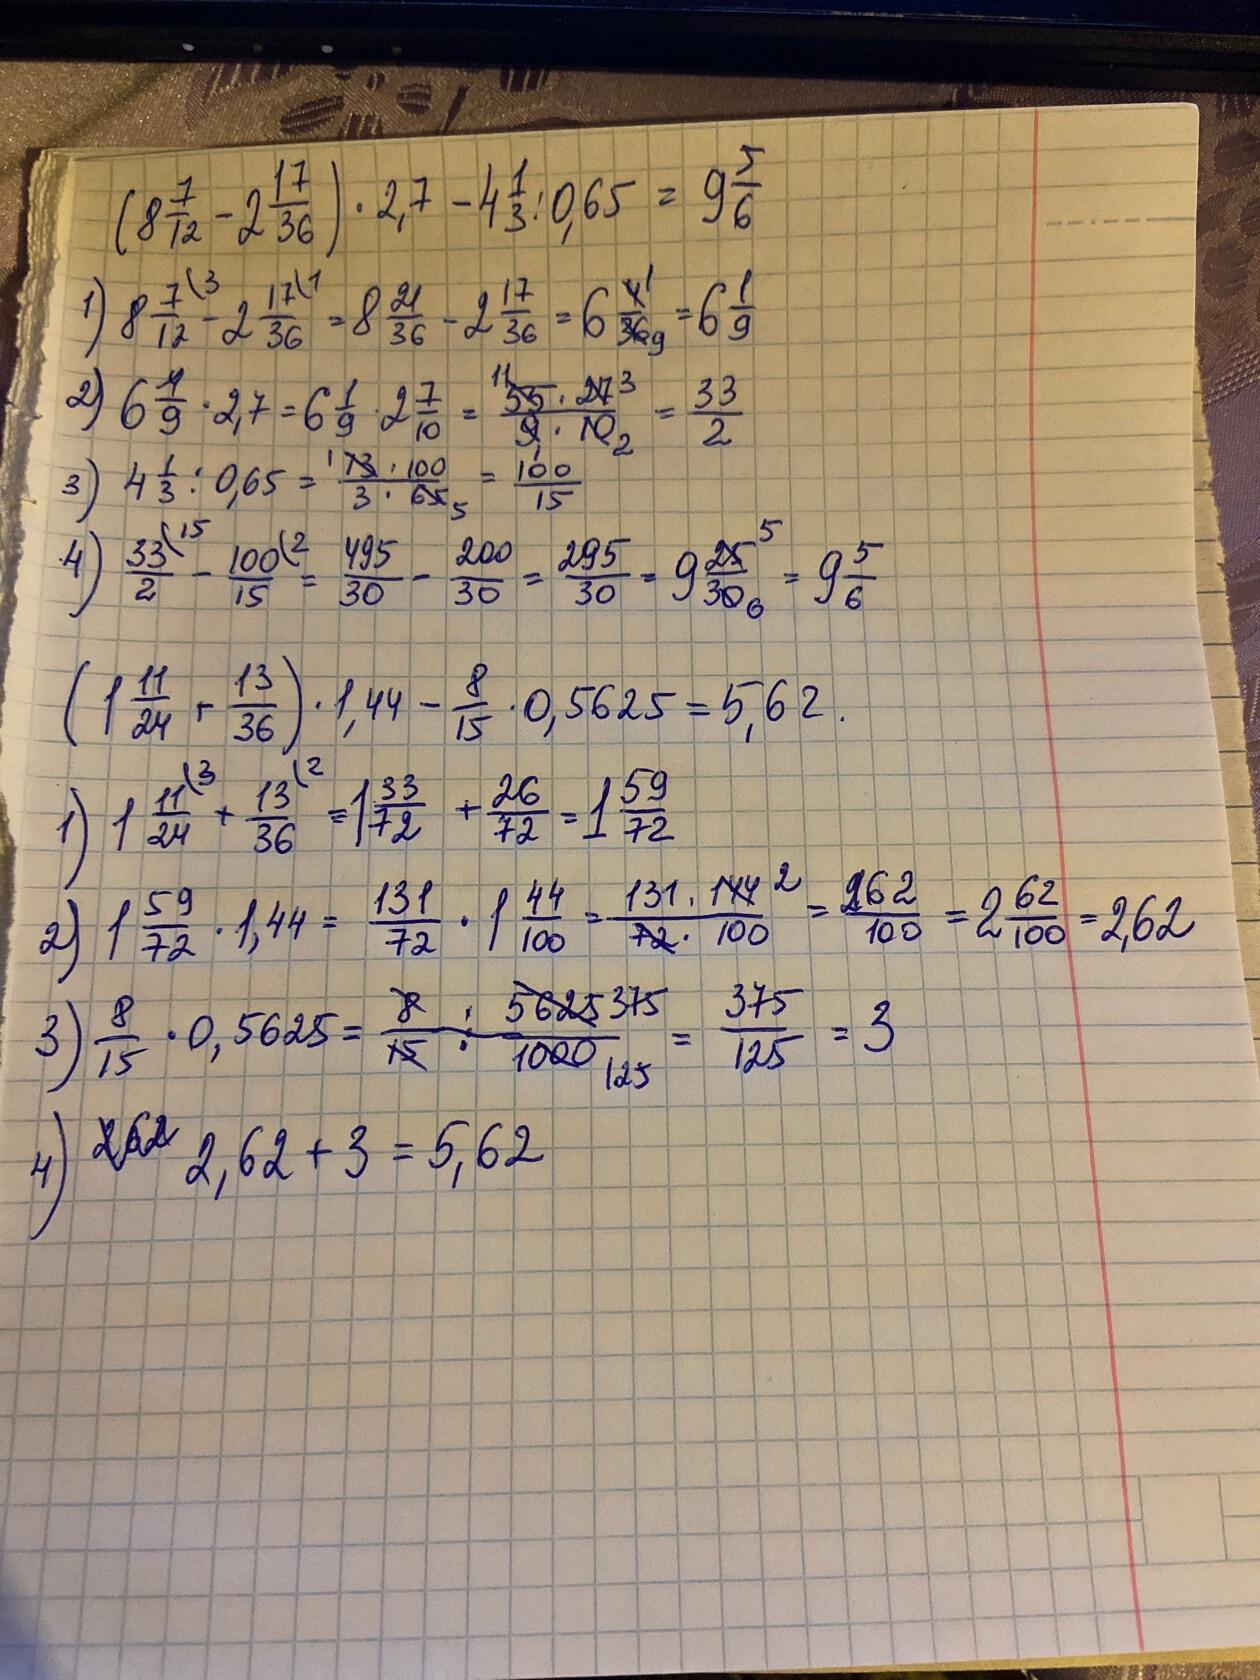 (8 7/12 - 2 17/36) · 2,7 - 4 1/3 : 0,65 = 9 5/6
1) 8 7/12 (3 - 2 17/36 (1 = 8 21/36 - 2 17/36 = 6 4/36 1 9 = 6 1/9
2) 6 1/9 · 2,7 = 6 1/9 · 2 7/10 = 11 55 · 27 3 / 9 1 · 10 2 = 33/2
3) 4 1/3 : 0,65 = 1 13 · 100 / 3 · 65 5 = 100/15
4) 33/2 (15 - 100/15 (2 = 495/30 - 200/30 = 295/30 = 9 25/30 5 6 = 9 5/6
(1 11/24 + 13/36) · 1,44 - 8/15 · 0,5625 = 5,62.
1) 1 11/24 (3 + 13/36 (2 = 1 33/72 + 26/72 = 1 59/72
2) 1 59/72 · 1,44 = 131/72 · 1 44/100 = 131 · 144 2 / 72 · 100 = 262/100 = 2 62/100 = 2,62
3) 8/15 · 0,5625 = 8/15 : 5625/1000 375 125 = 375/125 = 3
4) 262 2,62 + 3 = 5,62